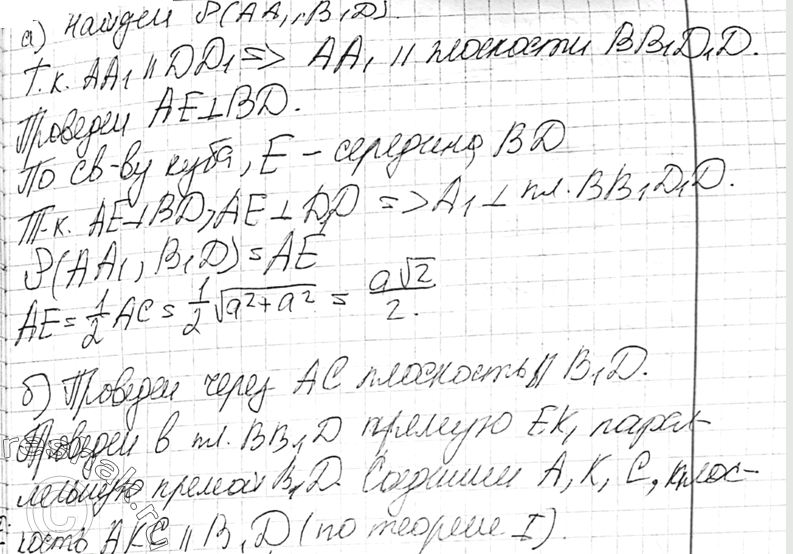 а) Найдем ρ(AA₁, B₁D).
Т.к. AA₁ || DD₁ => AA₁ || плоскости BB₁D₁D.
Проведем AE⊥BD.
По св-ву куба, E – середина BD
Т-к. AE⊥BD, AE⊥D₁D => A₁⊥ пл. BB₁D₁D.
ρ(AA₁, B₁D) = AE
AE = 1/2 AC = 1/2 √(a²+a²) = a√2/2.
б) Проведем через AC плоскость || B₁D.
Проведем в пл. BB₁D прямую EK, парал-
лельную прямой B₁D. Соединим A, K, C, плос-
кость AKC || B₁D (по теореме I).